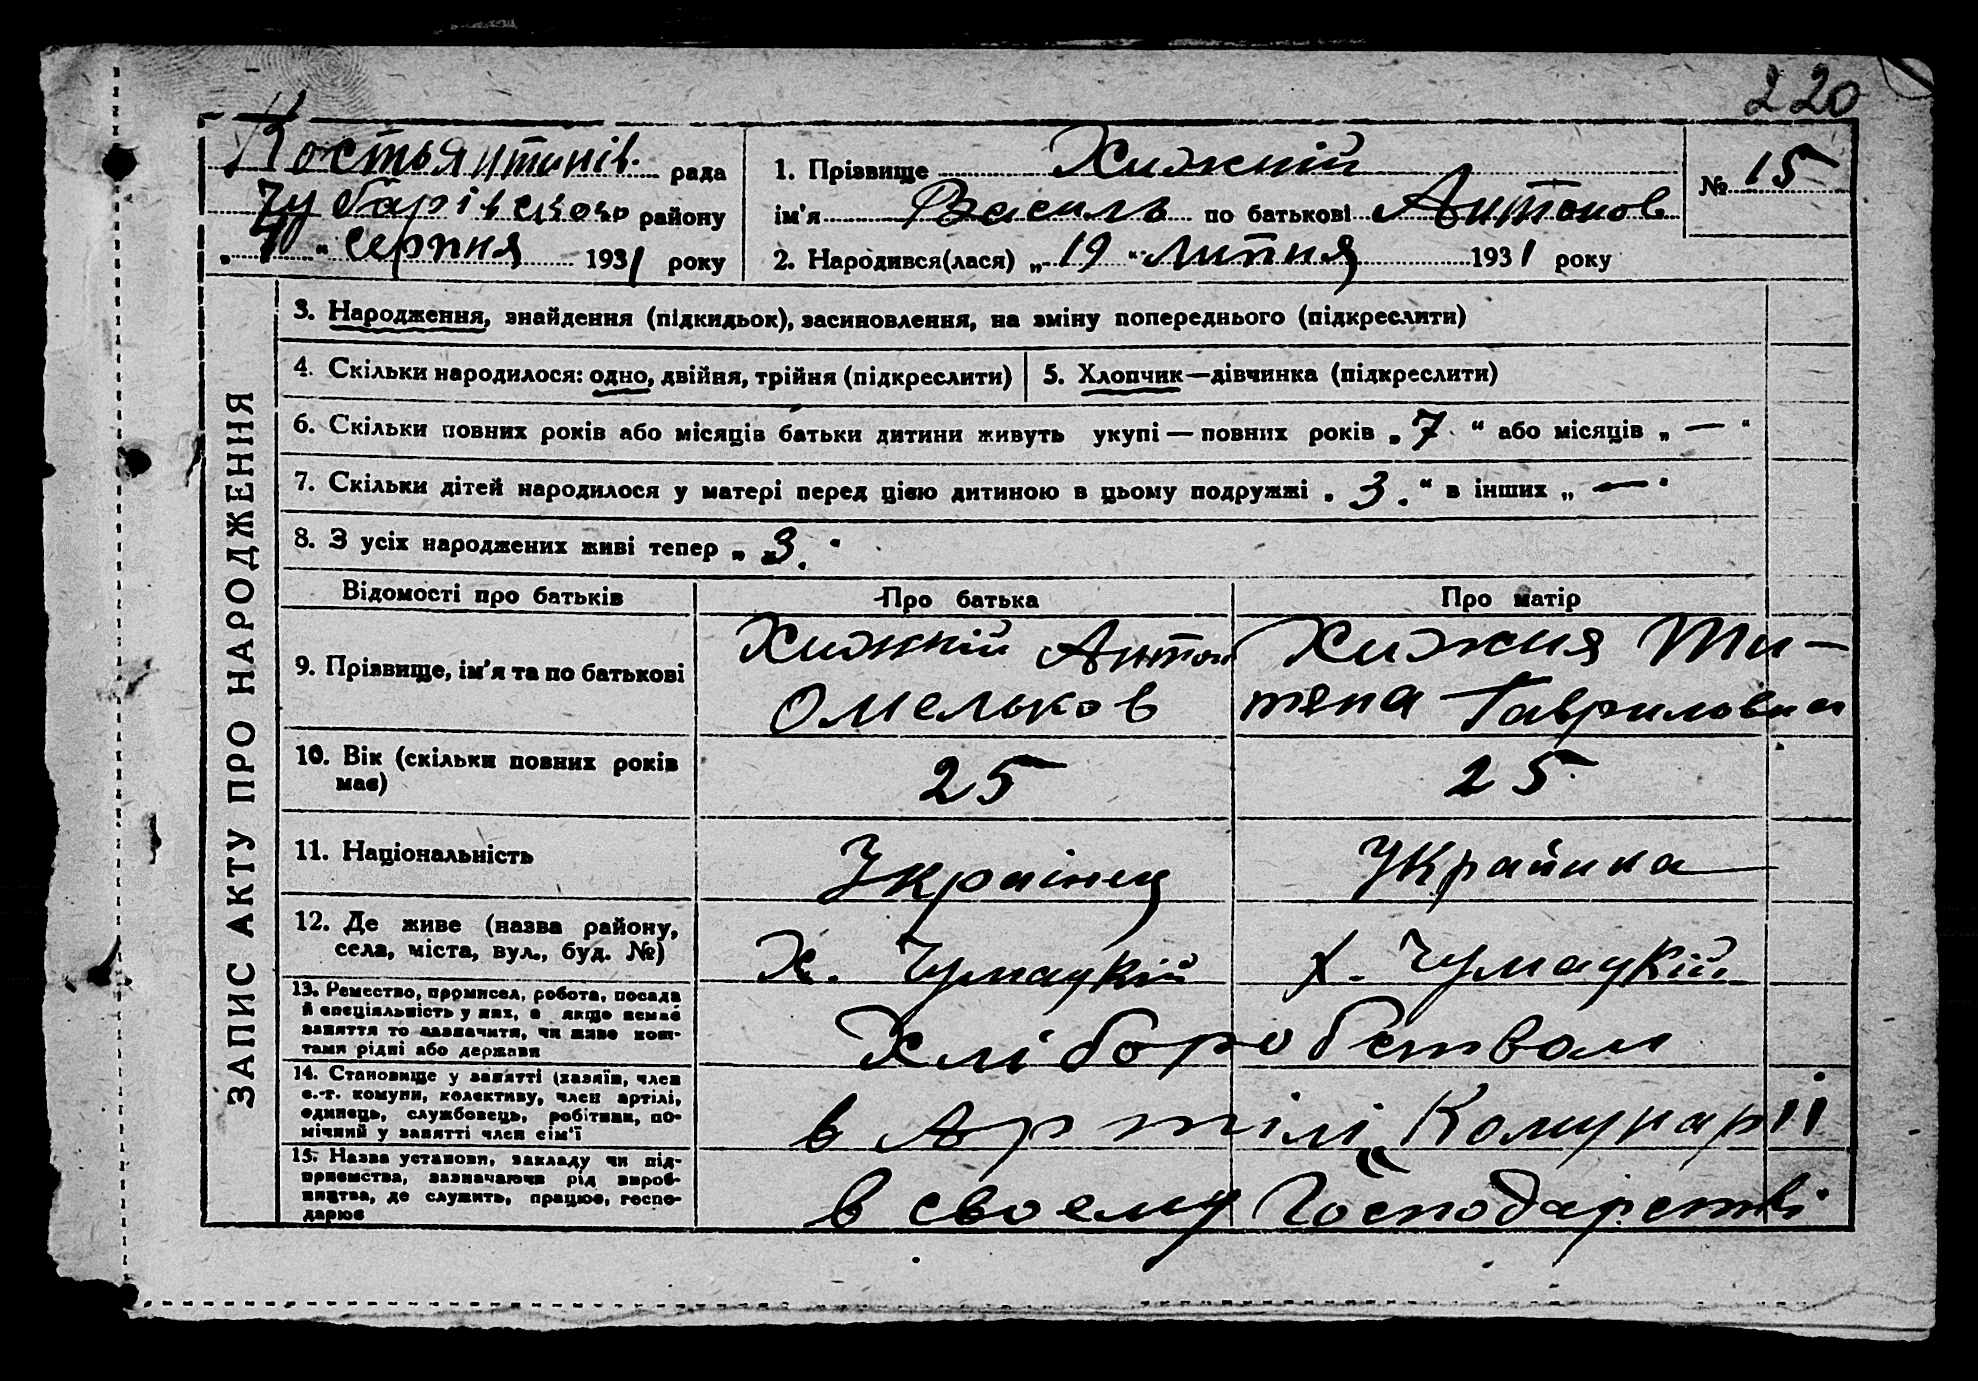 220
Костьянтинів. рада
Чубарівского району
„ 4 “ серпня 1931 року
1. Прізвище Хижній
ім'я Василь по батькові Антонов
2. Народився(лася) „ 19 “ липня 1931 року
№ 15
ЗАПИС АКТУ ПРО НАРОДЖЕННЯ
3. Народження, знайдення (підкидьок), засиновлення, на зміну попереднього (підкреслити)
4. Скільки народилося: одно, двійня, трійня (підкреслити)
5. Хлопчик—дівчинка (підкреслити)
6. Скільки повних років або місяців батьки дитини живуть укупі — повних років „ 7 “ або місяців „ — “
7. Скільки дітей народилося у матері перед цією дитиною в цьому подружжі „ 3. “ в інших „ — “
8. З усіх народжених живі тепер „ 3. “
Відомості про батьків
Про батька
Про матір
9. Прізвище, ім'я та по батькові
Хижній Антон
Омельков
Хижня Ти-
тяна Гавриловна
10. Вік (скільки повних років
має)
25
25
11. Національність
Украінец
Украйнка
12. Де живе (назва району,
села, міста, вул., буд. №)
Х. Чумацкій
х. Чумацкій
13. Ремество, промисел, робота, посада
й спеціяльність у них, а якщо немає
заняття то зазначити, чи живе кош-
тами рідні або держави
Хліборобством
14. Становище у занятті (хазяїн, член
с.-г. комуни, колективу, член артілі,
одинець, службовець, робітник, по-
мічний у занятті член сім'ї
в Артілі Комунарії
15. Назва установи, закладу чи під-
приємства, зазначаючи рід вироб-
ництва, де служить, працює, госпо-
дарює
в своему Господарстві